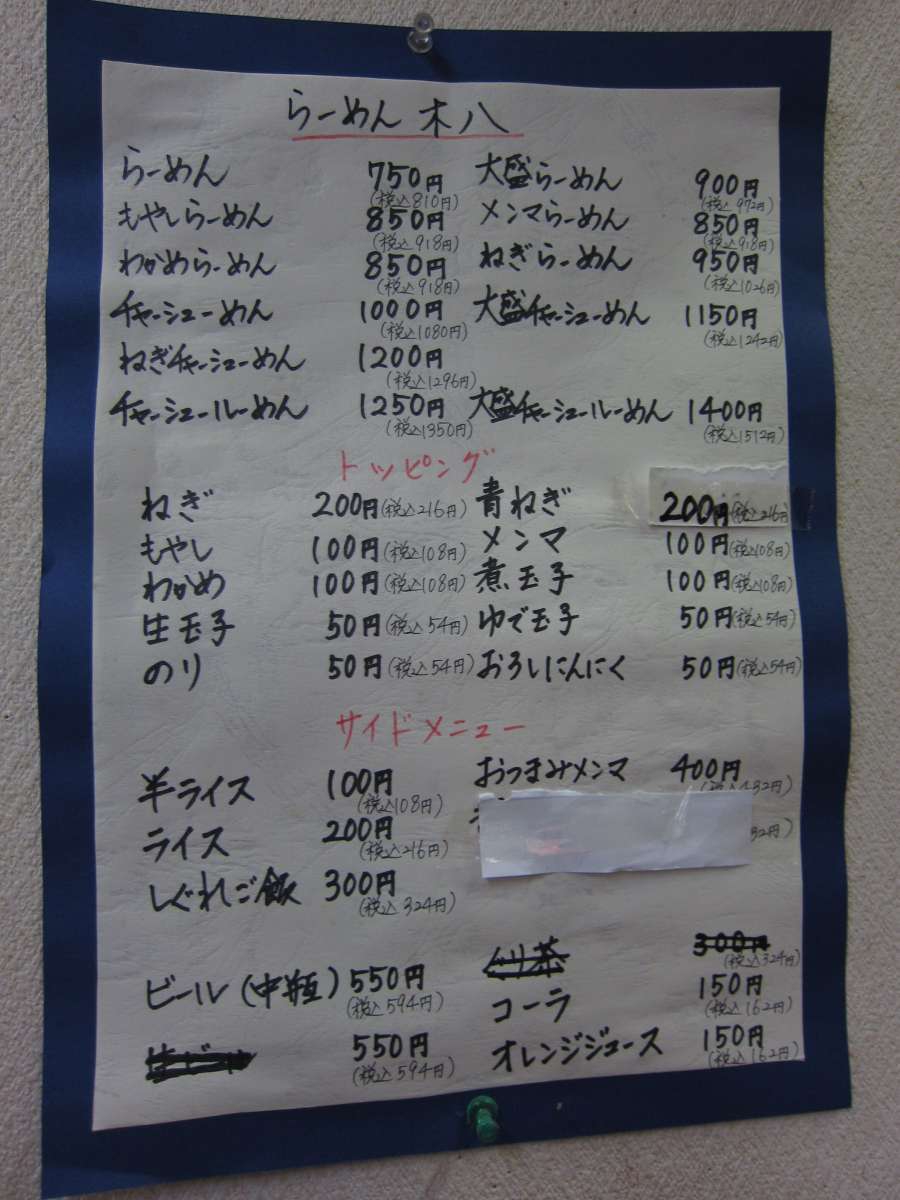 らーめん 木八
らーめん 750円 (税込810円) 大盛らーめん 900円 (税込972円)
もやしらーめん 850円 (税込918円) メンマらーめん 850円 (税込918円)
わかめらーめん 850円 (税込918円) ねぎらーめん 950円 (税込1026円)
チャーシューめん 1000円 (税込1080円) 大盛チャーシューめん 1150円 (税込1242円)
ねぎチャーシューめん 1200円 (税込1296円)
チャーシュールーめん 1250円 (税込1350円) 大盛チャーシュールーめん 1400円 (税込1512円)
トッピング
ねぎ 200円(税込216円) 青ねぎ 200円(税込216円)
もやし 100円(税込108円) メンマ 100円(税込108円)
わかめ 100円(税込108円) 煮玉子 100円(税込108円)
生玉子 50円(税込54円) ゆで玉子 50円(税込54円)
のり 50円(税込54円) おろしにんにく 50円(税込54円)
サイドメニュー
半ライス 100円 (税込108円) おつまみメンマ 400円 (税込432円)
ライス 200円 (税込216円)
しぐれご飯 300円 (税込324円)
300円 (税込324円)
ビール(中瓶) 550円 (税込594円) コーラ 150円 (税込162円)
550円 (税込594円) オレンジジュース 150円 (税込162円)